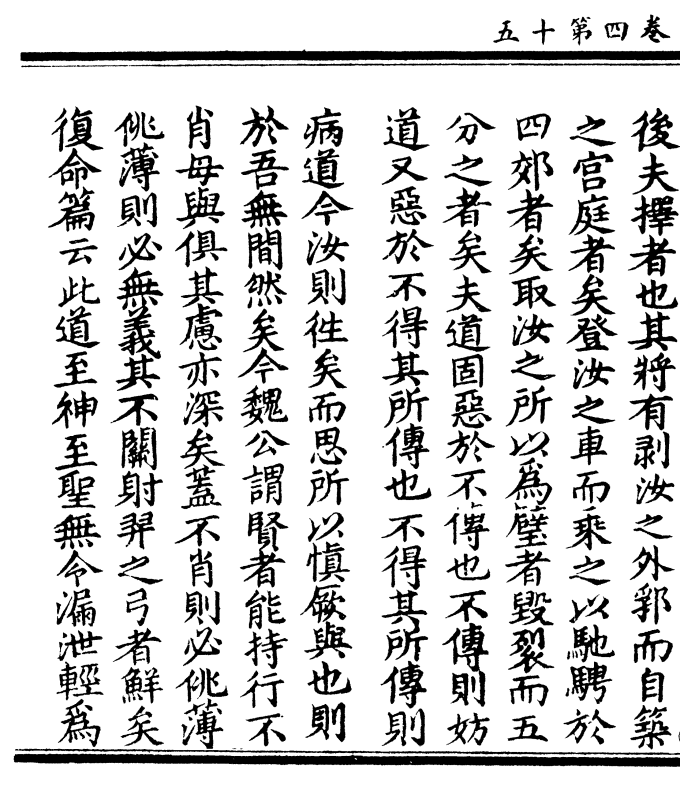 卷四第十五
後夫擇者也其將有剥汝之外郛而自築
之宫庭者矣登汝之車而乘之以馳騁於
四郊者矣取汝之所以爲璧者毀裂而五
分之者矣夫道固惡於不傳也不傳則妨
道又惡於不得其所傳也不得其所傳則
病道今汝則徃矣而思所以慎厥與也則
於吾無間然矣今魏公謂賢者能持行不
肖毋與俱其慮亦深矣蓋不肖則必佻薄
佻薄則必無義其不關射羿之弓者鮮矣
復命篇云此道至神至聖無令漏泄輕爲